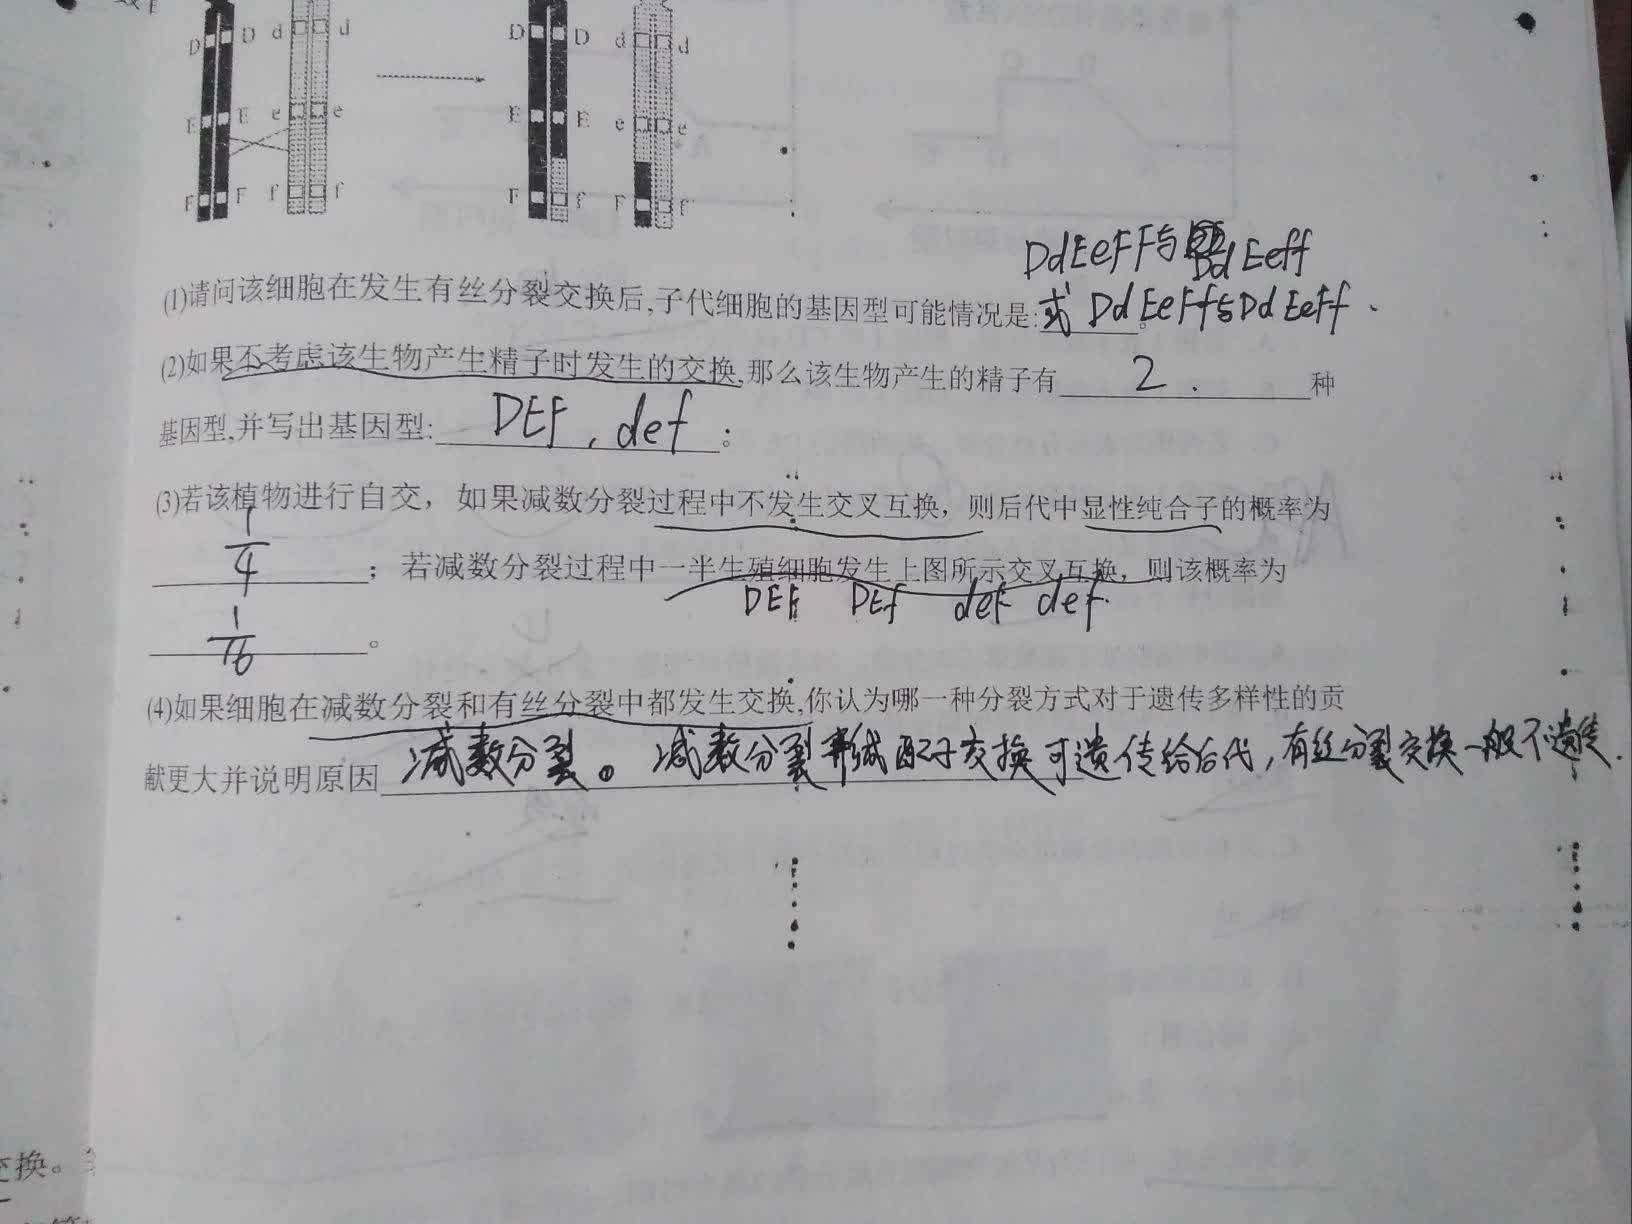 D D d d D D d d
E E e e E E e e
F F f f F f F f
DdEeFF与DdEeff
(1)请问该细胞在发生有丝分裂交换后,子代细胞的基因型可能情况是:或 DdEeFf与DdEeFf.
(2)如果不考虑该生物产生精子时发生的交换,那么该生物产生的精子有 2. 种
基因型,并写出基因型: DEF, def 。
(3)若该植物进行自交，如果减数分裂过程中不发生交叉互换，则后代中显性纯合子的概率为
1/4 ；若减数分裂过程中一半生殖细胞发生上图所示交叉互换，则该概率为
DEF DEf deF def.
1/16 。
(4)如果细胞在减数分裂和有丝分裂中都发生交换,你认为哪一种分裂方式对于遗传多样性的贡
献更大并说明原因 减数分裂。减数分裂形成配子交换可遗传给后代，有丝分裂交换一般不遗传.
交换。